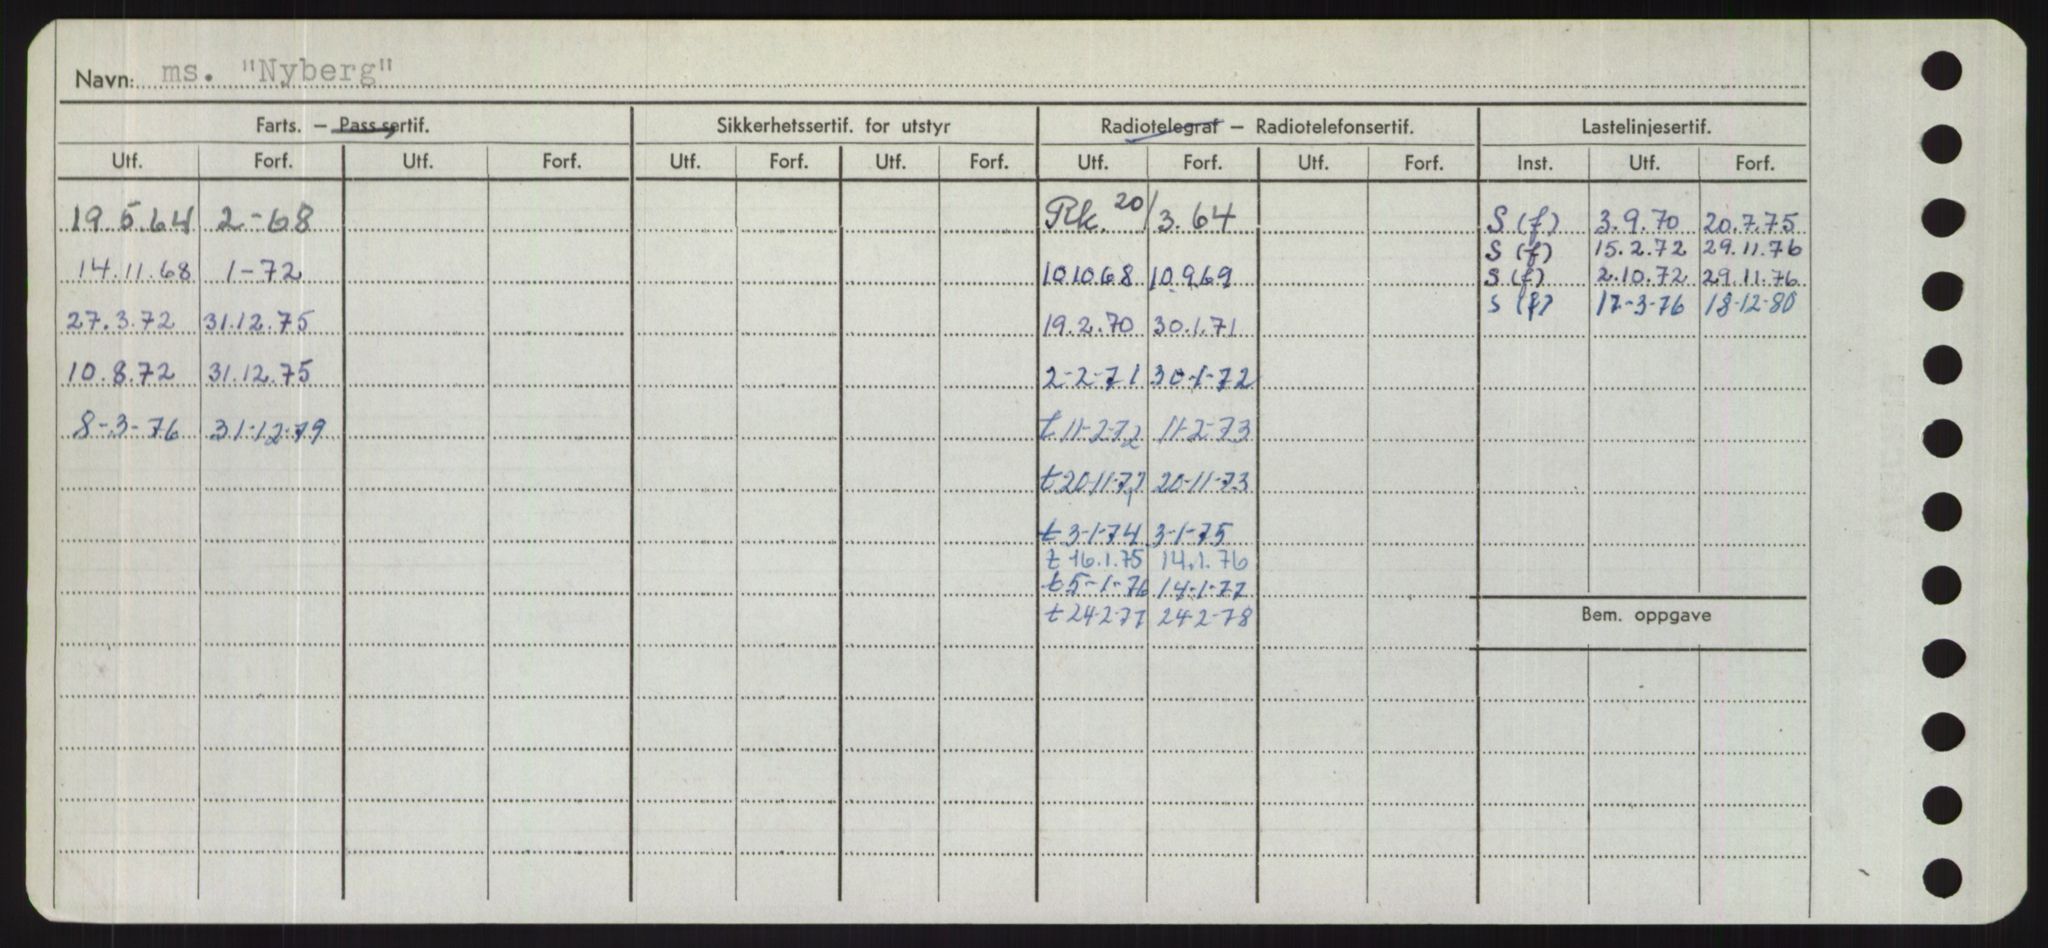 Navn: ms. "Nyberg"
Farts. – Pass.sertif. Sikkerhetssertif. for utstyr Radiotelegraf – Radiotelefonsertif. Lastelinjesertif.
Utf. Forf. Utf. Forf. Utf. Forf. Utf. Forf. Utf. Forf. Utf. Forf. Inst. Utf. Forf.
19.5.64 2-68 Rk. 20/3.64 S (f) 3.9.70 20.7.75
S (f) 15.2.72 29.11.76
14.11.68 1-72 10.10.68 10.9.69 S (f) 2.10.72 29.11.76
S (f) 17-3-76 18-12-80
27.3.72 31.12.75 19.2.70 30.1.71
10.8.72 31.12.75 2-2-71 30-1-72
8-3-76 31-12-79 t 11-2-72 11-2-73
t 20-11-72 20-11-73
t 3-1-74 3-1-75
t 16.1.75 14.1.76
t 5-1-76 14-1-77
t 24-2-77 24-2-78
Bem. oppgave